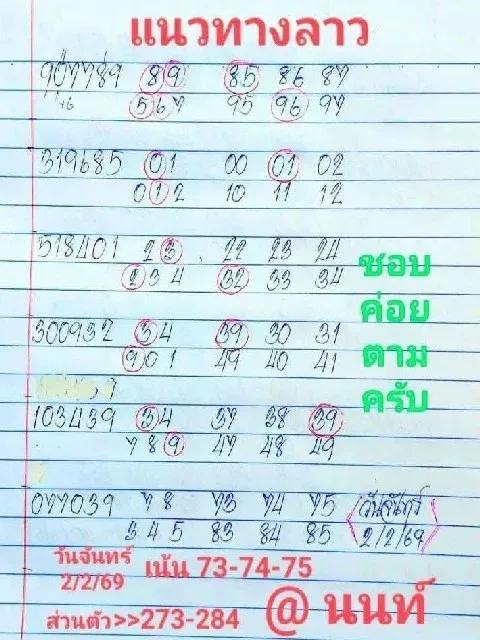 แนวทางลาว
907789 89 85 86 87
+6 567 95 96 97
319685 01 00 01 02
012 10 11 12
518401 23 22 23 24
234 32 33 34
ชอบ
ค่อย
ตาม
ครับ
300932 34 39 30 31
901 49 40 41
103439 34 37 38 39
789 47 48 49
077039 78 73 74 75
345 83 84 85
วันจันทร์
2/2/69
วันจันทร์
2/2/69
เน้น 73-74-75
ส่วนตัว>>273-284
@ นนท์